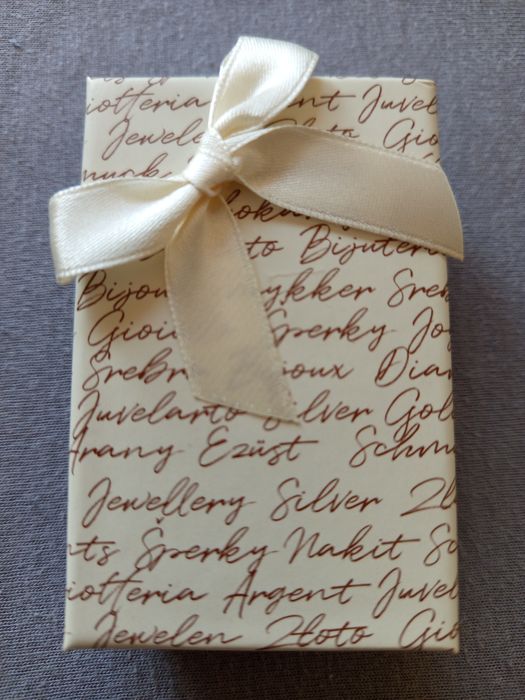 iotteria ent Juvel
Jewele Zloto Gio
muck
loka
to Bijuteri
Bijou ykker Sreb
Gioi Šperky Jo
Srebr ioux Dia
Juvelarto Silver Gol
Arany Ezüst Schm
Jewellery Silver Zl
nts Šperky Nakit Sc
iotteria Argent Juvel
Jewelen Zloto Gio